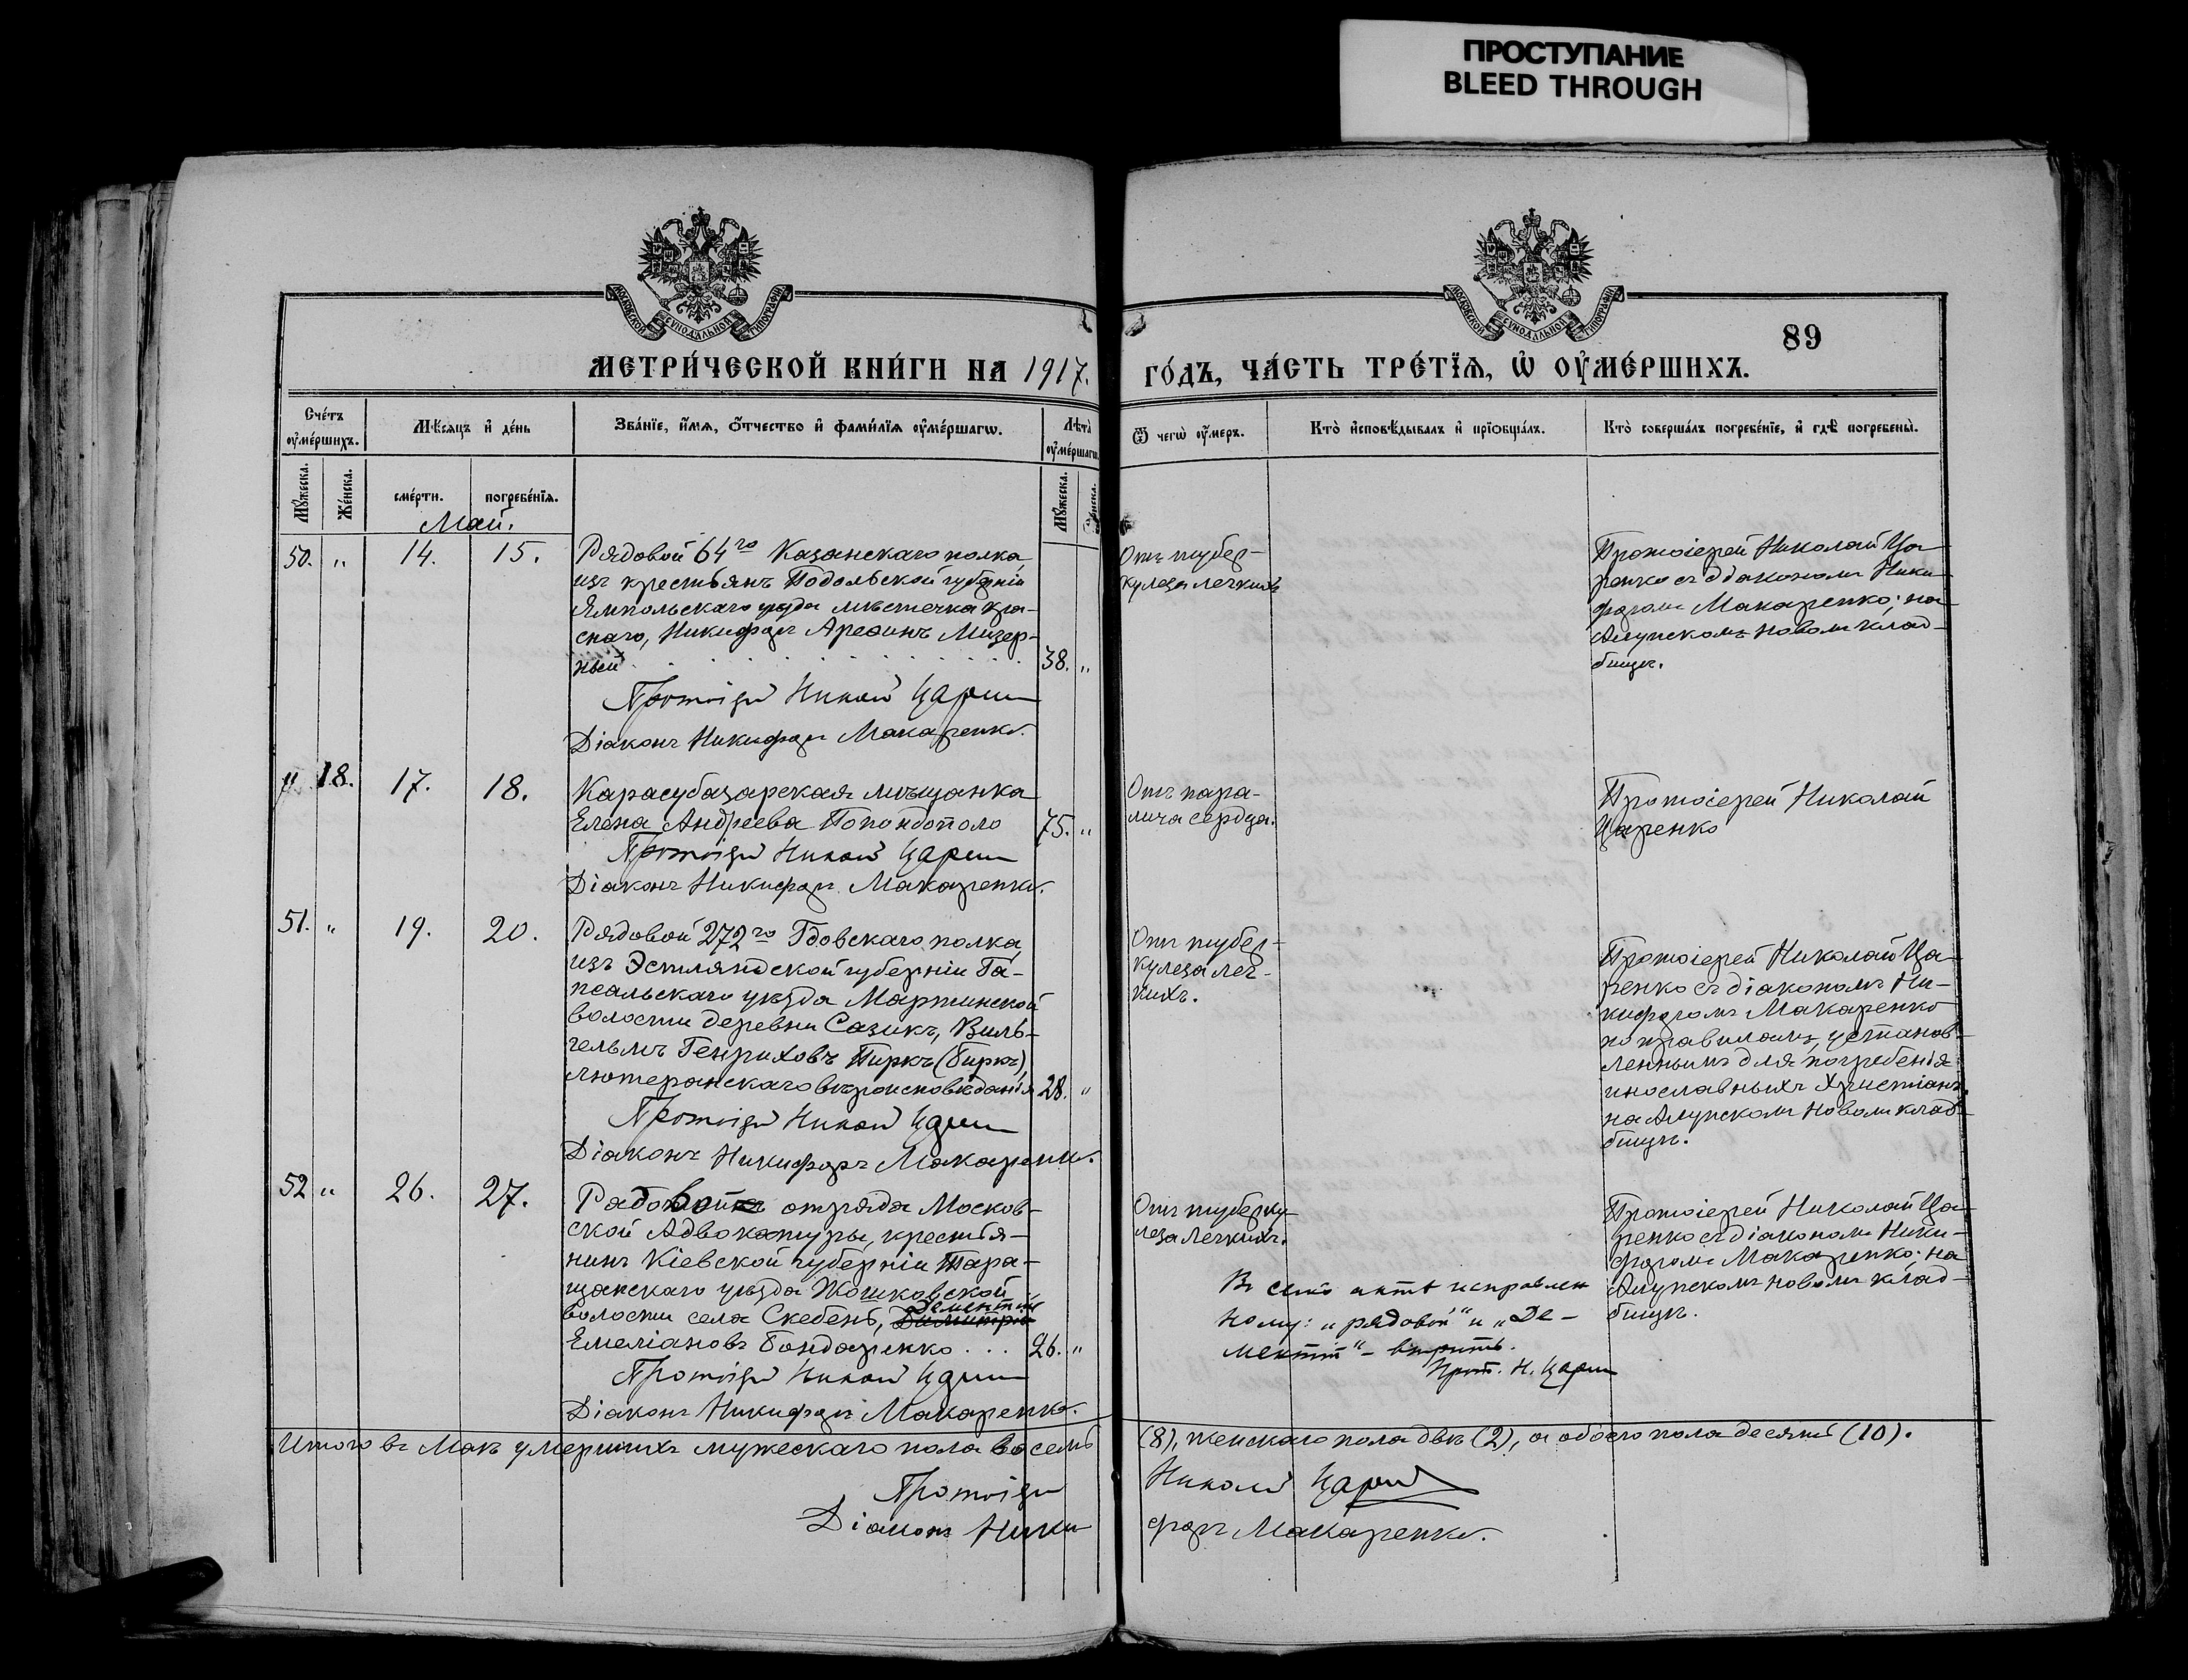 ПРОСТУПАНИЕ
BLEED THROUGH
МОСКОВСКОЙ СУНОДАЛЬНОЙ ТИПОГРАФІИ
МОСКОВСКОЙ СУНОДАЛЬНОЙ ТИПОГРАФІИ
89
МЕТРИ́ЧЕСКОЙ КНИ́ГИ НА 1917. ГО́ДЪ, ЧА́СТЬ ТРЕ́ТЇѦ, Ѡ҆ ОУ҆МЕ́РШИХЪ.
Сче́тъ оу҆ме́ршихъ.
Мѣ́сѧцъ и҆ де́нь
Зва́нїе, и҆́мѧ, ѻ҆́тчество и҆ фами́лїѧ оу҆ме́ршагѡ.
Лѣ́та оу҆ме́ршагѡ.
Ѿ чегѡ̀ оу҆́меръ.
Кто̀ и҆сповѣ́дывалъ и҆ прїѻбща́лъ.
Кто̀ соверша́лъ погребе́нїе, и҆ гдѣ̀ погребены̀.
Мꙋ́жеска.
Же́нска.
сме́рти.
погребе́нїѧ.
Мꙋ́жеска.
Же́нска.
Май.
50. " 14. 15.
Рядовой 64го Казанскаго полка,
изъ крестьянъ Подольской губерніи
Ямпольскаго уѣзда мѣстечка Кра-
снаго, Никифоръ Арефинъ Мизер-
ный . . . . . . . . . 38. "
Протоіерей Николай Царенко
Діаконъ Никифоръ Макаренко.
Отъ тубер-
кулеза легкихъ
Протоіерей Николай Ца-
ренко съ діакономъ Ники-
форомъ Макаренко; на
Алупскомъ новомъ клад-
бищѣ.
" 18. 17. 18.
Карасубазарская мѣщанка
Елена Андреева Попондополо 75. "
Протоіерей Николай Царенко
Діаконъ Никифоръ Макаренко.
Отъ пара-
лича сердца.
Протоіерей Николай
Царенко
51. " 19. 20.
Рядовой 272го Гдовскаго полка,
изъ Эстляндской губерніи Га-
псальскаго уѣзда Мартинской
волости деревни Сазикъ, Виль-
гельмъ Генриховъ Пиркъ (Биркъ),
лютеранскаго вѣроисповѣданія 28. "
Протоіерей Николай Царенко
Діаконъ Никифоръ Макаренко.
Отъ тубер-
кулеза лег-
кихъ.
Протоіерей Николай Ца-
ренко съ діакономъ Ни-
кифоромъ Макаренко
по правиламъ, установ-
леннымъ для погребенія
инославныхъ христіанъ,
на Алупскомъ новомъ клад-
бищѣ.
52 " 26. 27.
Рядовой отряда Москов-
ской Адвокатуры, крестья-
нинъ Кіевской губерніи Тара-
щанскаго уѣзда Жошковской
волости села Скебенъ, Димитрій
Дементій
Емеліановъ Бондаренко . . . 26. "
Протоіерей Николай Царенко
Діаконъ Никифоръ Макаренко.
Отъ туберку-
леза легкихъ.
Въ семъ актѣ исправлен
ному: "рядовой" и "Де-
ментій" - вѣрить.
Прот. Н. Царенко
Протоіерей Николай Ца-
ренко съ діакономъ Ники-
форомъ Макаренко: на
Алупскомъ новомъ клад-
бищѣ.
Итого въ Маѣ умершихъ мужескаго пола восемь (8), женскаго пола двѣ (2), а обоего пола десять (10).
Протоіерей Николай Царенко
Діаконъ Никифоръ Макаренко.